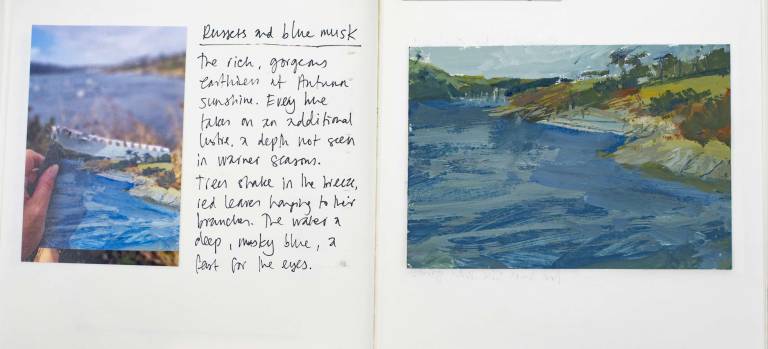 Russets and blue musk
The rich, gorgeous
earthiness of Autumn
sunshine. Every hue
takes on an additional
lustre, a depth not seen
in warmer seasons.
Trees shake in the breeze,
red leaves hanging to their
branches. The water a
deep, musky blue, a
feast for the eyes.